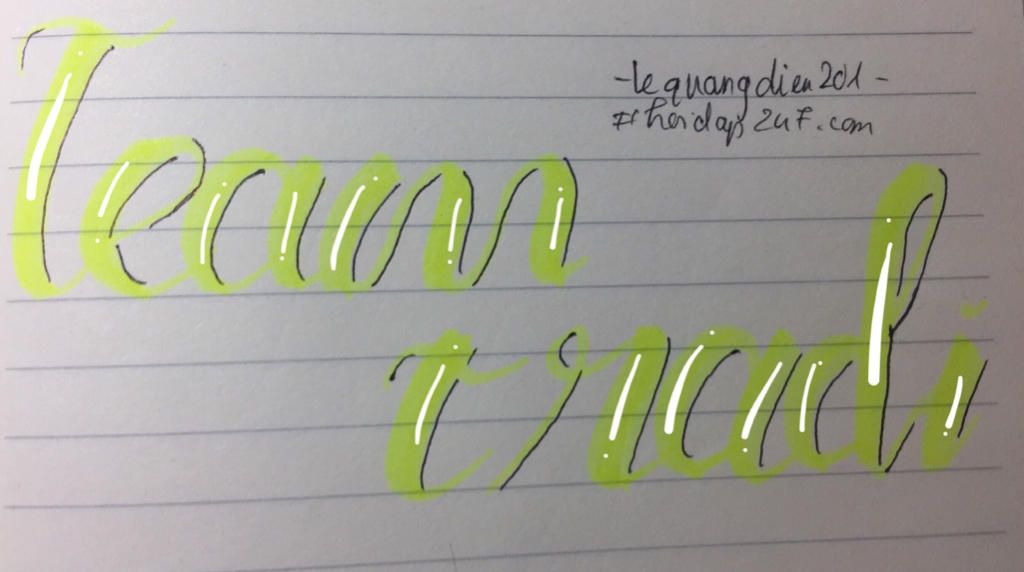 Team
-lequangdien201-
#hoidap247.com
tradi